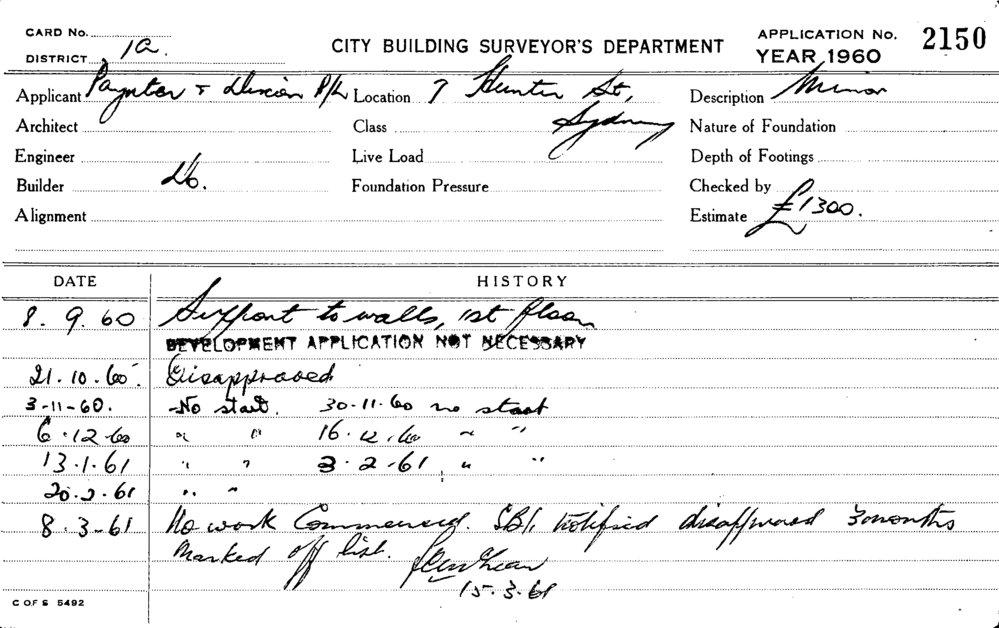 CARD No.
DISTRICT 1a.
CITY BUILDING SURVEYOR'S DEPARTMENT
APPLICATION No. 2150
YEAR 1960
Applicant Paynter & Dixon P/L Location 7 Hunter St, Description Minor
Architect Class Sydney Nature of Foundation
Engineer Live Load Depth of Footings
Builder do. Foundation Pressure Checked by
Alignment Estimate £1300.
DATE HISTORY
8. 9. 60 Support to walls, 1st floor
DEVELOPMENT APPLICATION NOT NECESSARY
21. 10. 60. Disapproved
3-11-60. No start. 30-11-60 no start
6.12.60 " " 16.12.60 " "
13.1.61 " " 3.2.61 " "
20.2.61 " "
8.3.61 No work Commenced. notified disapproved 3 months
Marked off list.
15.3.61
C OF S 5492